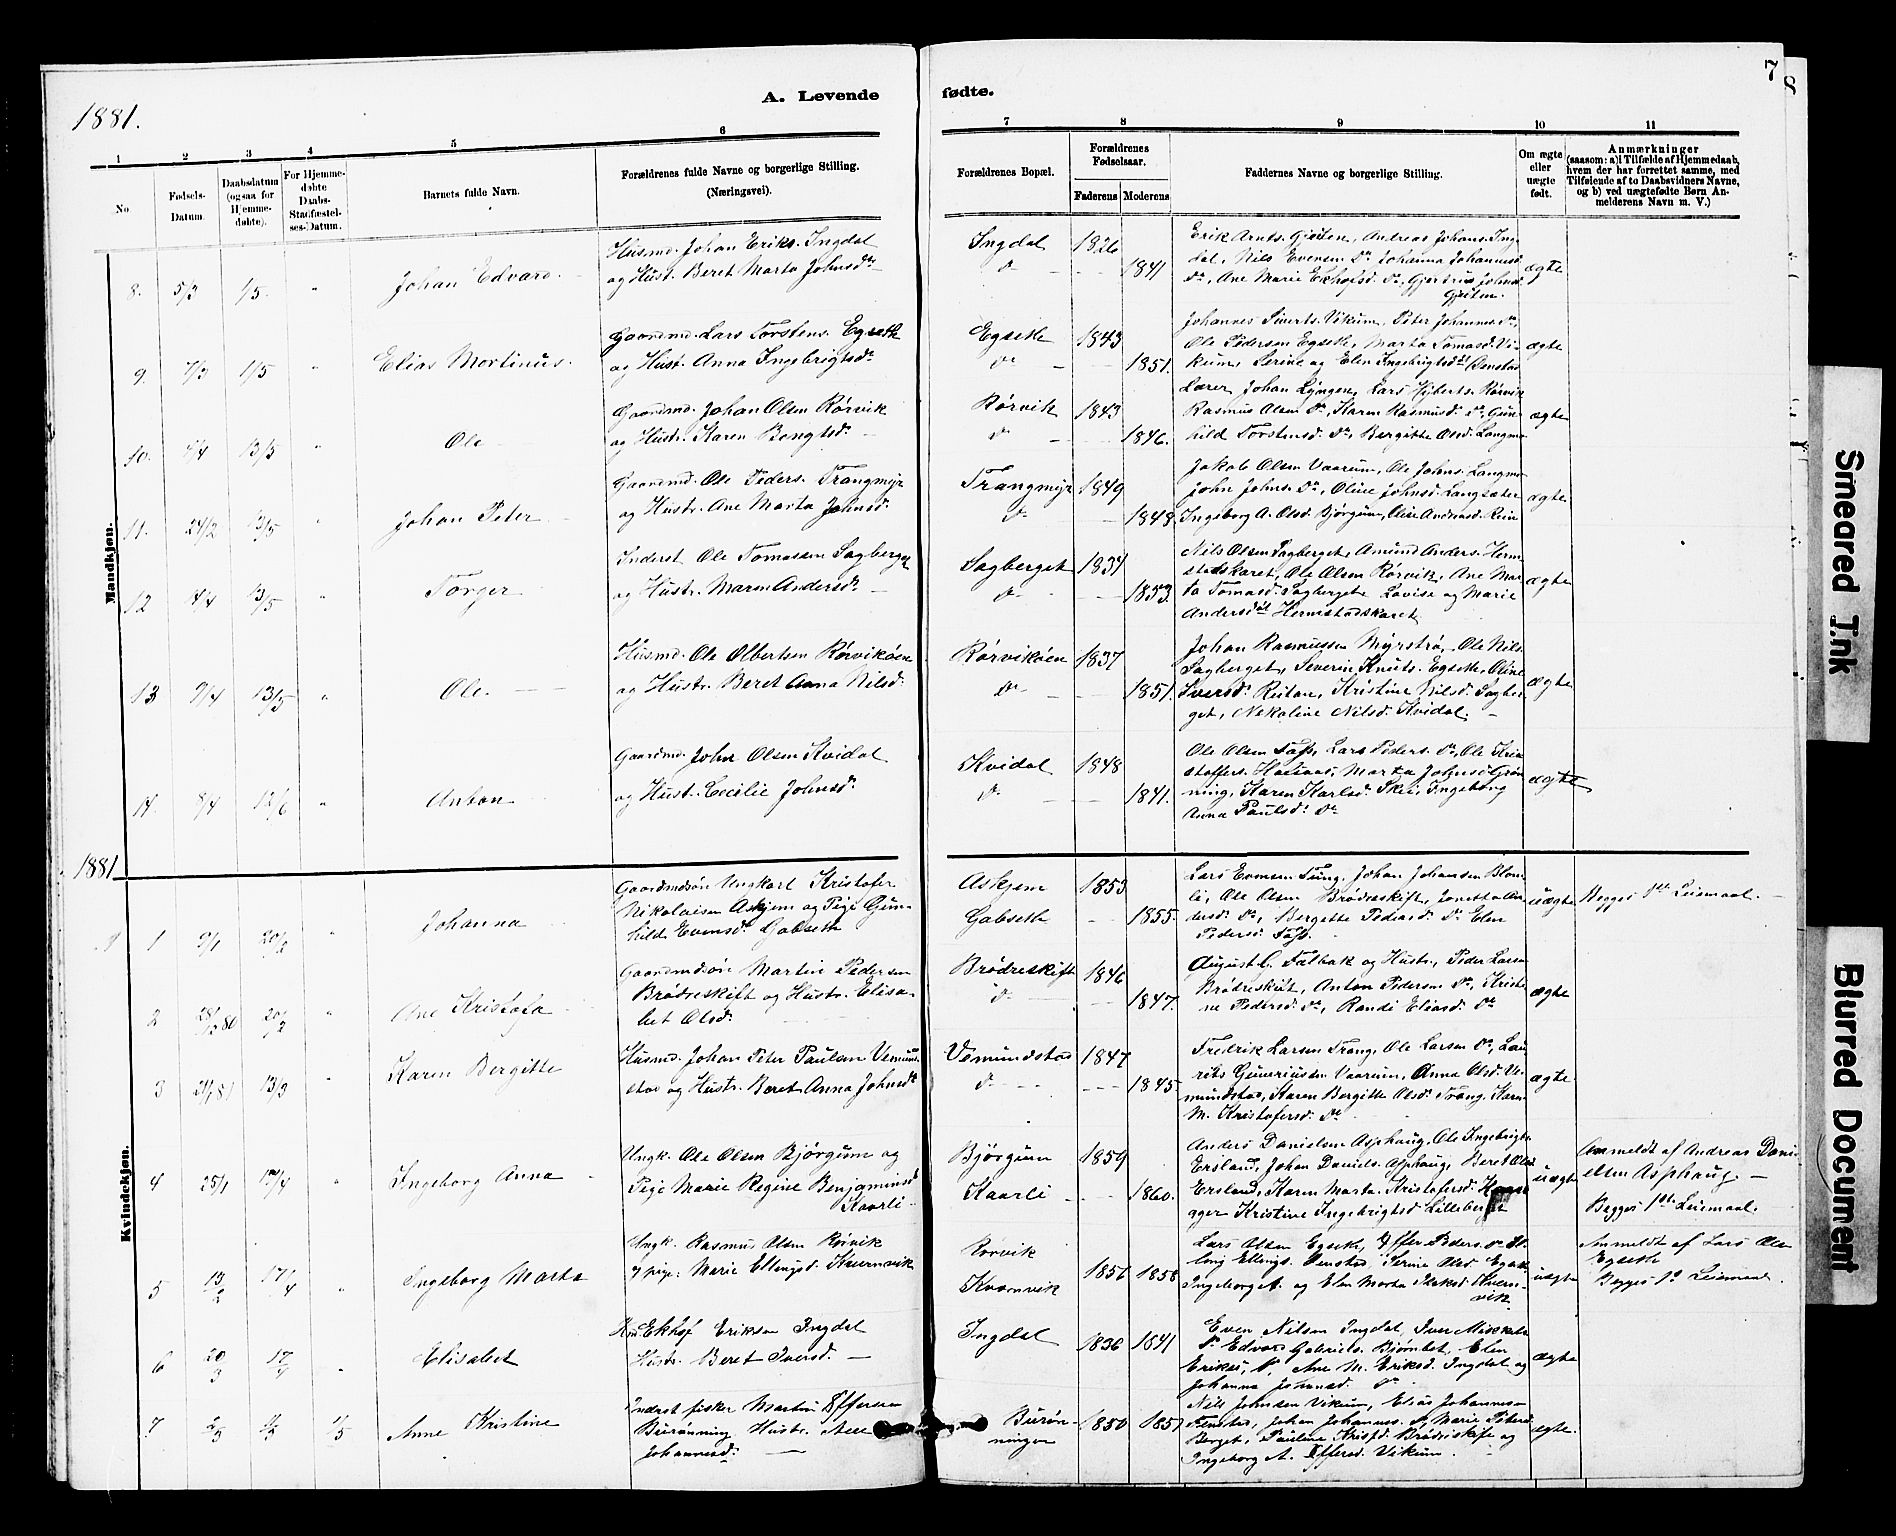 1881.
A. Levende
fødte.
7
8
1
2
3
4
5
6
7
8
9
10
11
No
Fødsels-
Datum.
Daabsdatum
(ogsaa for
Hjemme-
døbte).
For Hjemme-
døbte
Daabs-
Stadfæstel-
ses-Datum.
Barnets fulde Navn.
Forældrenes fulde Navne og borgerlige Stilling.
(Næringsvei).
Forældrenes Bopæl.
Forældrenes
Fødselsaar.
Faderens
Moderens
Faddernes Navne og borgerlige Stilling.
Om ægte
eller
uægte
født.
Anmærkninger
(saasom: a) i Tilfælde af Hjemmedaab,
hvem der har forrettet samme, med
Tilføiende af to Daabsvidners Navne,
og b) ved uægtefødte Børn An-
melderens Navn m. V.)
Mandkjøn.
8. 5/3 1/5. " Johan Edvard
Husmd. Johan Eriks. Ingdal
og Hust. Beret Marta Johnsdr
Ingdal 1826
do 1841
Erik Arnts. Gjeiten, Andreas Johans. Ing-
dal, Nils Evensen do Johanna Johannesd.
do, Ane Marie Ekhofsd. do, Gjertrud Johnsd.
Gjeiten.
ægte
9. 7/3 1/5 " Elias Martinus.
Gaardmd. Lars Torstens. Egseth
og Hust. Anna Ingebrigtsdr
Egseth 1843
do 1851.
Johannes Siverts. Vikum, Peter Johannes. do,
Ole Pedersen Egseth, Marta Tomasd. Vi-
kum, Serine og Elen Ingebrigtsdr Tenstad
ægte
10. 4/4 13/5 " Ole
Gaardmd. Johan Olsen Rørvik
og Hustr. Karen Bengtsd.
Rørvik 1843
do 1846.
Lærer Johan Lyngen, Lars Hjberts. Rørvik
Rasmus Olsen do, Karen Rasmusd. do, Gun-
hild Torstensd. do, Bergitte Olsd. Langmo
ægte
11. 24/2 13/5 " Johan Peter
Gaardmd. Ole Peders. Trangmyr
og Hustr. Ane Marta Johnsd.
Trangmyr 1849
do 1848.
Jakob Olsen Vaarum, Ole Johns. Langmo
John Johns. do, Oline Johnsd. Langsæter
Ingeborg A. Olsd. Bjørgum, Oline Andreasd. Rein
ægte
12 14/4 13/5 " Torger
Inderst Ole Tomassen Sagberget
og Hustr. Maren Andersdr
Sagberget 1834
do 1853.
Nils Olsen Sagberget, Amund Anders. Herm-
stadskaret, Ole Olsen Rørvik, Ane Mar-
ta Tomasd. Sagberget Lovise og Marie
Andersdr Hermstadskaret
ægte
13 9/4 13/5 " Ole.
Husmd. Ole Olbertsen Rørvikøen
og Hustr. Beret Anna Nilsd.
Rørvikøen 1837
do 1851.
Johan Rasmussen Myrstrø, Ole Nils.
Sagberget, Severin Knuts. Egseth, Oline
Iversd. Reitan, Kristine Nilsd. Sagber-
get, Nekoline Nilsd. Kvidal.
ægte
14. 8/4 12/6 " Anton
Gaardmd. John Olsen Kvidal
og Hust. Cecilie Johnsd.
Kvidal 1848
do 1841.
Ole Olsen Taß, Lars Peders. do, Ole Kri-
stoffers. Hosnas, Marta Johnsd. Grøn-
ning, Karen Karlsd. Skei, Ingeborg
Anna Paulsd. do
ægte
1881
Kvindekjøn.
1 9/1 20/2 " Johanna
Gaardmdsøn Ungkarl Kristofer
Nikolaisen Askjem og Pige Gun-
hild Evensd. Gabseth
Askjem 1853
Gabseth 1855.
Lars Evensen Tung, Johan Johansen Blom-
li, Ole Olsen Brødreskift, Jonetta An-
dersd. do, Bergette Pedersd. do Elen
Pedersd. Taß.
uægte
Begges 1ste Leiemaal.
2 28/12 80 20/2 " Ane Kristofa
Gaardmdsøn Martin Pedersen
Brødreskift og Hustr. Elisa-
bet Olsd.
Brødreskift 1846
do 1847.
August C. Falbak og Hustr., Peder Larsen
Brødreskift, Anton Pedersen do, Kristi-
ne Pedersd. do, Randi Eliasd. do
ægte
3 31/1 81 13/3 " Karen Bergitte
Husmd. Johan Peter Paulsen Vemund-
stad og Hustr. Beret Anna Johnsdr
Vemundstad 1847
do 1845
Fredrik Larsen Trang, Ole Larsen do, Lau-
rits Guneriussen Vaarum, Anna Olsd. Ve-
mundstad, Karen Bergitte Olsd. Trang, Karen
M. Kristofersd. do
ægte.
4 25/1 18/4 " Ingeborg Anna
Ungk. Ole Olsen Bjørgum og
Pige Marie Regine Benjaminsd.
Kaarli
Bjørgum 1859
Kaarli 1860.
Anders Danielsen Asphaug, Ole Ingebrigts.
Ersland, Johan Daniels. Asphaug, Beret Olsd.
Ersland, Karen Marta Kristofersd.
ager Kristine Ingebrigtsd. Lilleberget
uægte
Anmeldt af Andreas Dani-
elsen Asphaug.
Begges 1ste Leiemaal.
5 13/2 17/4 " Ingeborg Marta
Ungk. Rasmus Olsen Rørvik
& pige: Marie Ellingsd. Kvernvik
Rørvik
Kvernvik 1856 1858
Lars Olsen Egseth, Effer Peders. do El-
ling Ellings. Tenstad, Serine Olsd. Egseth
Ingeborg A. og Elen Marta Kvern-
vik.
uægte
Anmeldt af Lars Ols.
Egseth
Begges 1ste Leiemaal.
6 20/3 17/4 " Elisabet
Ekhof Eriksen Ingdal
Hustr. Beret Iversd.
Ingdal 1836 1841
Even Nilsen Ingdal, Iver
do Edvard Gabriels. Elen
Eriksd. do, Ane M. Eriksd. Ingdal og
Johanna Johansd. do
ægte
7. 2/3 1/5 Anne Kristine
Inderst fisker Martin Effersen
Burønning Hustr. Ane
Johannesd.
Burøn-
ningen 1850 1857
Nils Johnsen Vikum, Elias Johannesen
Tenstad, Johan Johanness. do, Marie Petersd.
Berget, Pauline Brødreskift og
Ingeborg A. Effersd. Vikum.
ægte.
Smeared Ink
Blurred Document